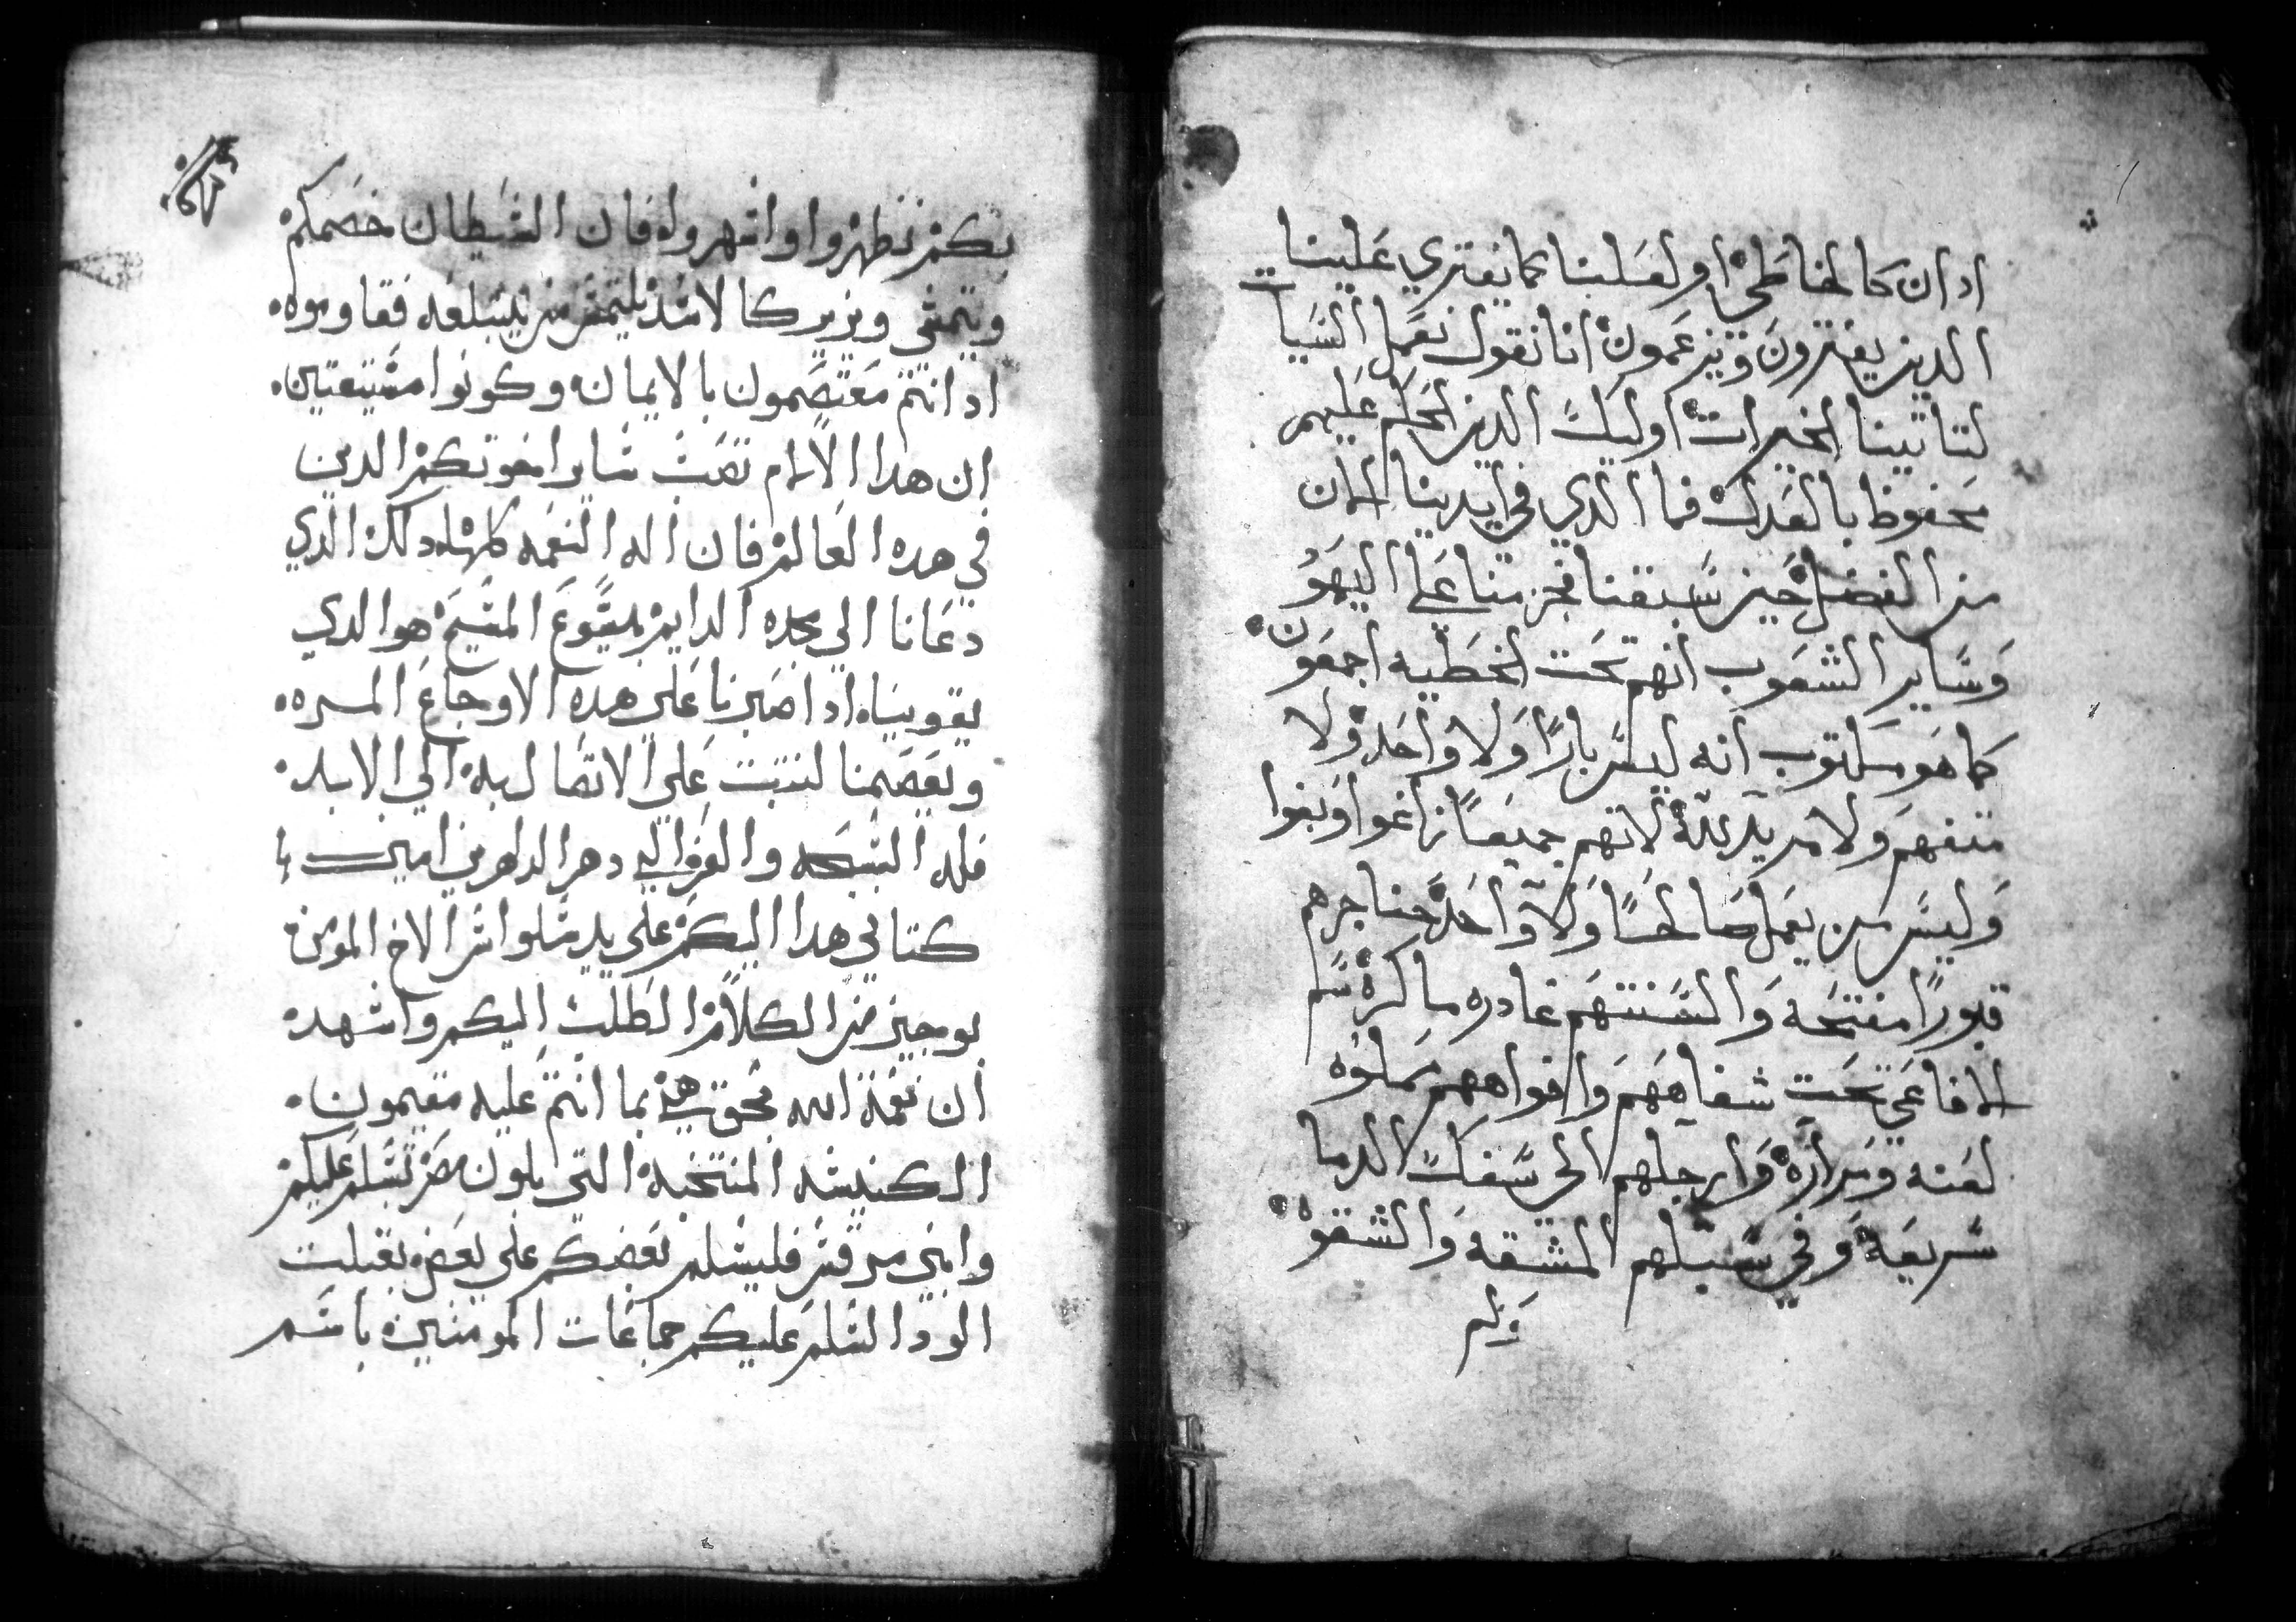 ادان كالخاطي او لعلنا كما يفتري علينا
الدين يفترون ويزعمون انا نقول نعمل السيات
لتاتينا الخيرات اوليك الدين الحكم عليهم
محفوظ بالعدل فما الدي في ايدينا الان
من الفضل حين سبقنا فجزمنا علي اليهو
وساير الشعوب انهم تحت الخطيه اجمعون
كما هو مكتوب انه ليس بارًا ولا واحد ولا
متفهم ولا مريد لله لانهم جميعًا زاغوا وبغوا
وليس من يعمل صالحًا ولا واحد حناجرهم
قبورًا مفتحه والسنتهم غادره ماكره سم
الافاعي تحت شفاههم وافواههم مملوه
لعنه ومراره وارجلهم الى سفك الدما
سريعه وفي سبلهم المشقه والشقوه
ولم
بكم تظهروا وانتهروله فان الشيطان خصمكم
ويمشي ويزير كالاسد يلتمس من يبتلعه فقاوموه
اد انتم معتصمون بالايمان وكونوا مستيقين
ان هدا الالام تصب ساير اخوتكم الدين
في هده العالم فان اله النعمه كلها دلك الدي
دعانا الي مجده الدايم بيسوع المسيح هو الدي
يقوينا ادا صبرنا علي هده الاوجاع المسره
ويعصمنا لنتبت علي الاتصال به الي الابد
فله السبحه والعز الي دهر الداهرين امين
كتابي هدا اليكم علي يد سلوانس الاخ المومن
بوجيز من الكلام الطلب اليكم واشهد
ان نعمة الله بحق هي بما انتم عليه مقيمون
الكنيسه المنتخبة التي بمصر تسلم عليكم
وابني مرقس فليسلم بعضكم علي بعض بقبلت
الود السلم عليكم جماعات المومنين باسم